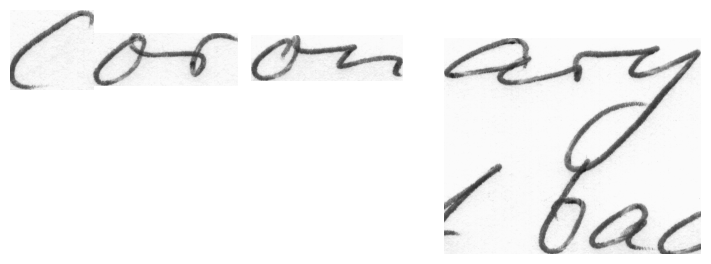 Coronary
bac